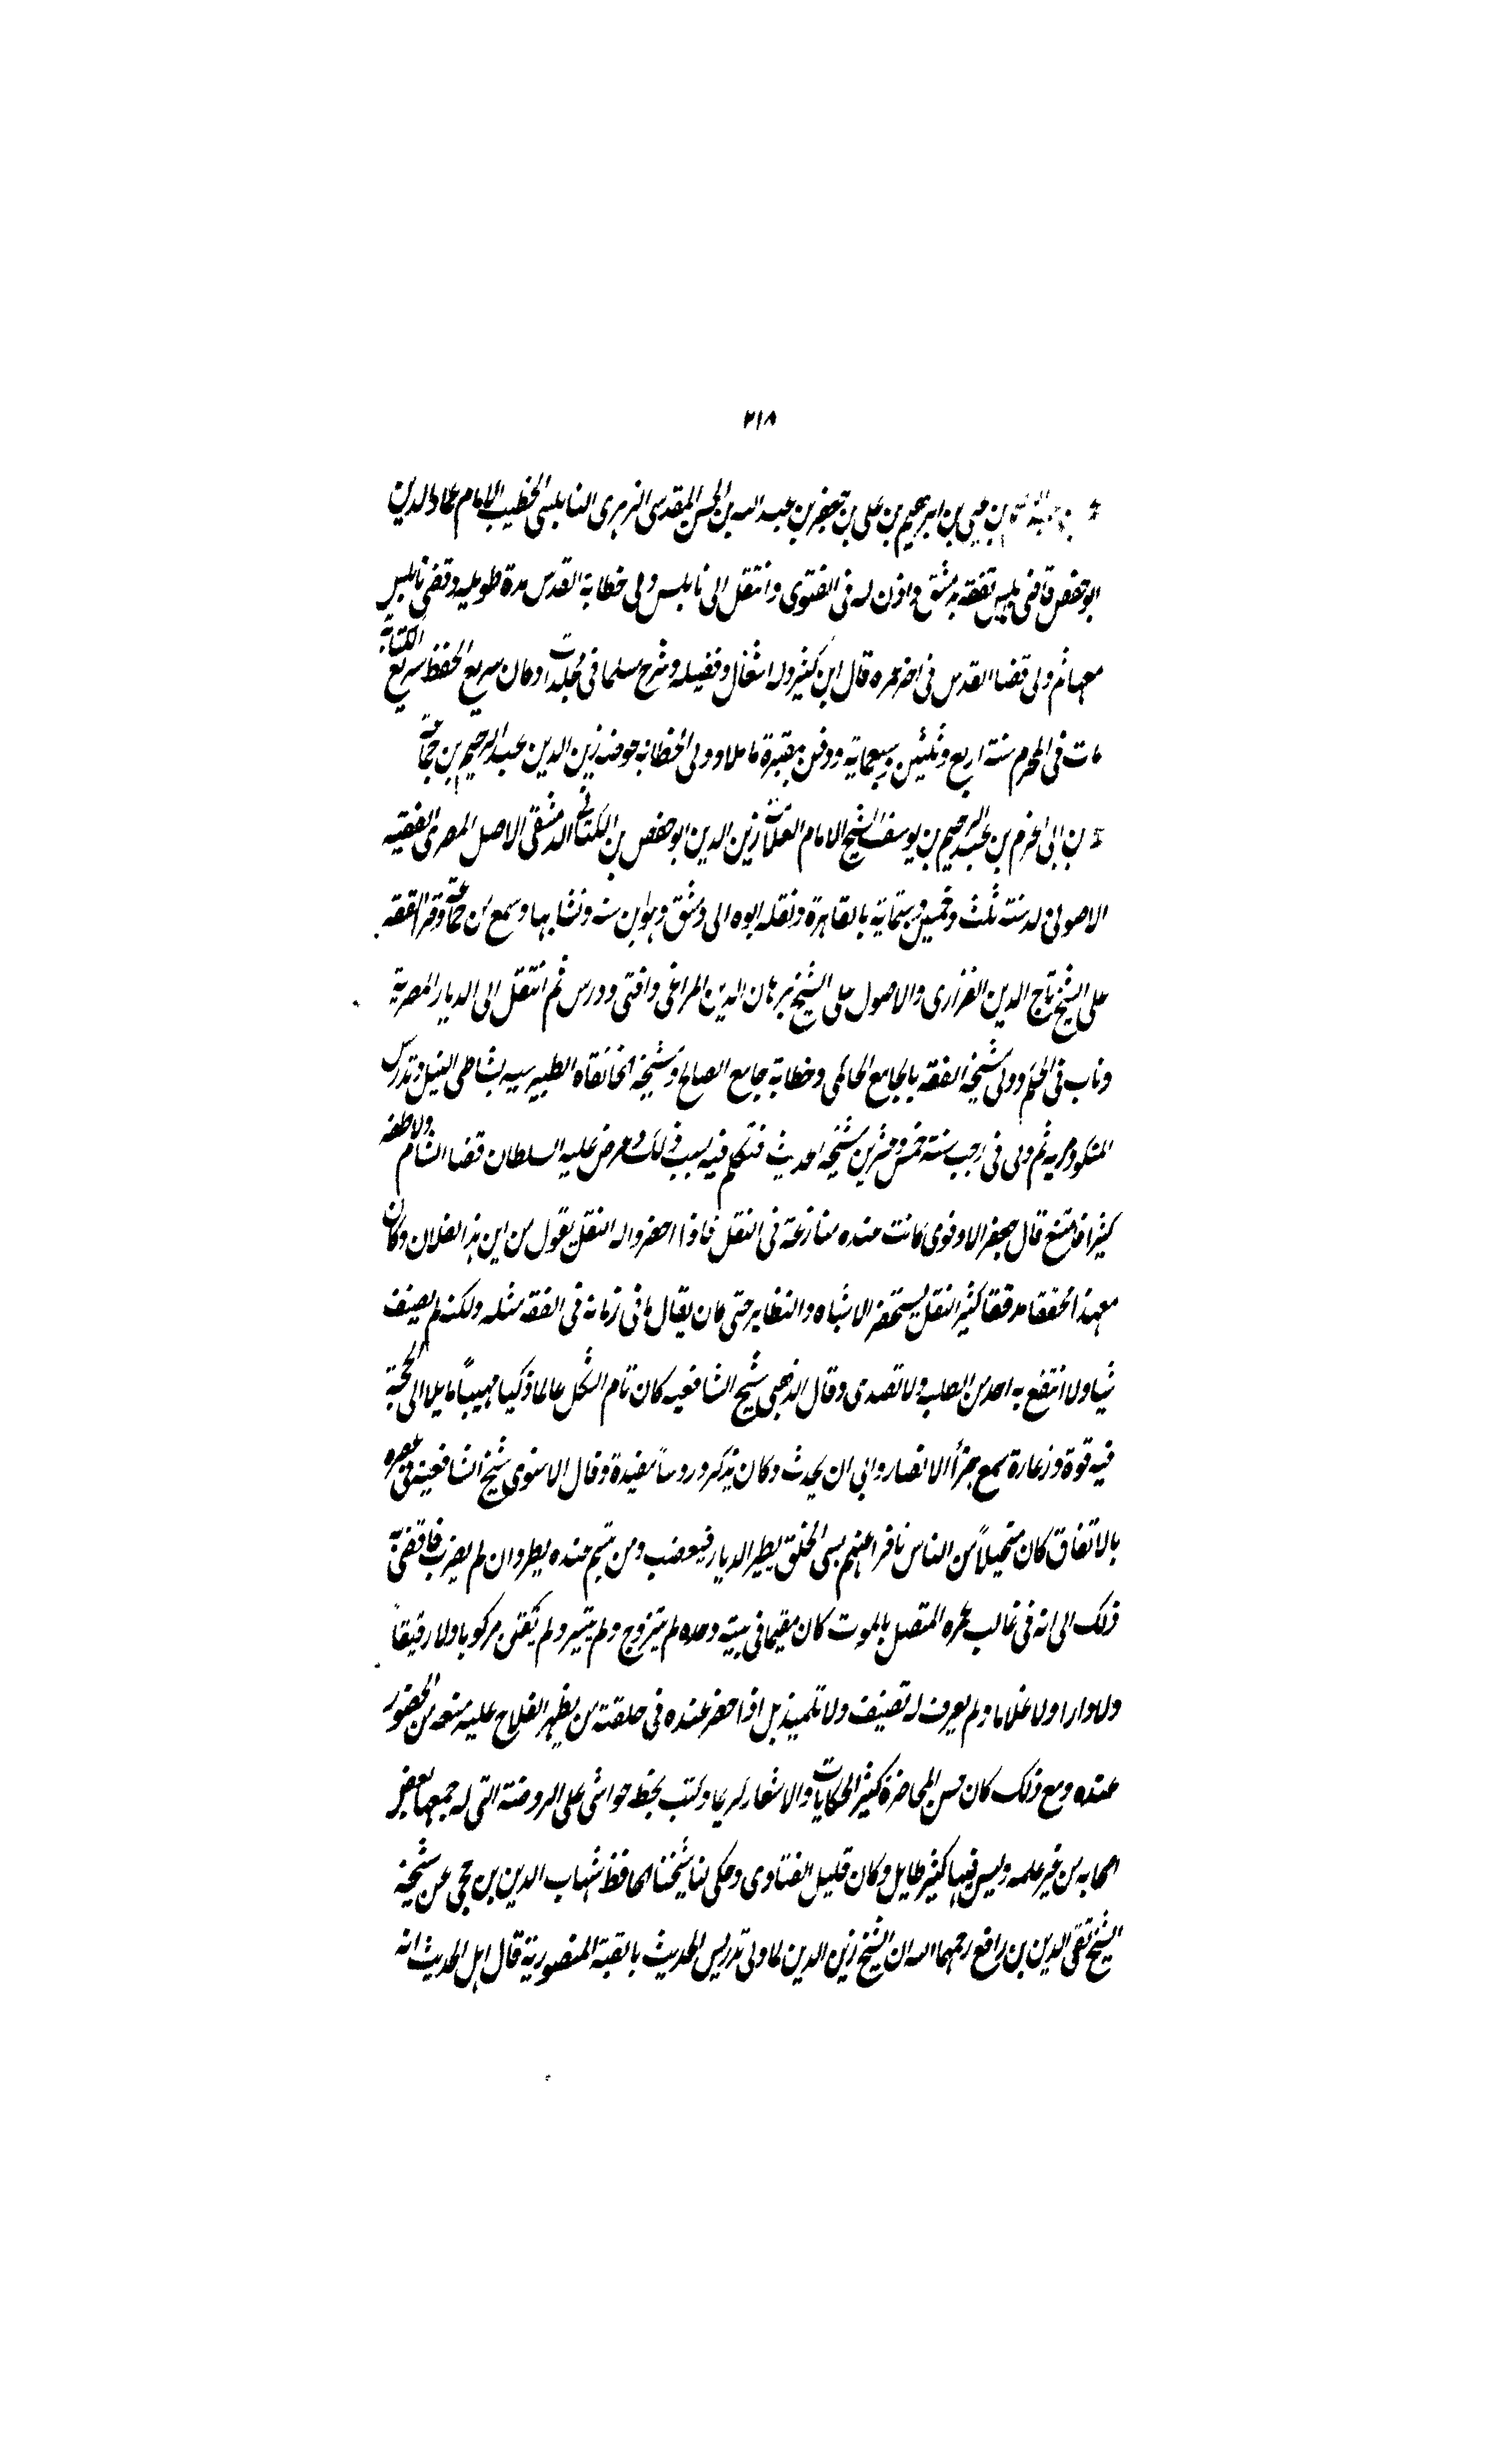 ٢١٨
بن يحيى بن ابرهيم بن على بن جعفر بن عبد الله بن الحسن المقدسى الزهرى النابلسى الخطيب الامام عماد الدين
ابو حفص قاضى نابلس تفقه بدمشق واذن له فى الفتوى وانتقل الى نابلس ولى خطابة القدس مدة طويلة وقضى نابلس
معها ثم ولى قضا القدس فى اخر عمره قال ابن كثير وله اشتغال وفضيله وشرح مسلما فى مجلدات وكان سريع الحفظ سريع الكتابة
مات فى المحرم سنة اربع وثلثين وسبعماية ودفن بمقبرة ماملا وولى الخطابة عوضه زين الدين عبد الرحيم بن جماعة
بن ابى الحزم بن عبد الرحيم بن يوسف الشيخ الامام العلامة زين الدين ابو حفص بن الكتانى الدمشقى الاصل المصرى الفقيه
الاصولى ولد سنة ثلث وخمسين وستماية بالقاهرة ونقله ابوه الى دمشق وهو ابن سنه ونشا بها وسمع من جماعة وقرا الفقه
على الشيخ تاج الدين الفزارى والاصول على الشيخ برهان الدين المراغى وافتى ودرس ثم انتقل الى الديار المصرية
وناب فى الحكم وولى مشيخة الفقه بالجامع الحاكمى وخطابة جامع الصالح ومشيخة الخانقاه الطيبرسيه بشاطى النيل وتدريس
المنكوتمريه ثم ولى فى رجب سنة خمس وعشرين مشيخه الحديث فتكلم فيه بسبب ذلك وعرض عليه السلطان قضا الشام ولاطفه
كثيرا فامتنع قال جعفر الادفوى كانت عنده منازعة فى النقل فاذا احضروا له النقل يقول من اين هذا لفلان وكان
معهذا محققا مدققا كثير النقل يستحضر الاشباه والنظاير حتى كان يقال ما فى زمانه فى الفقه مثله ولكنه لم يصنف
شيا ولا انتفع به احد من الطلب ولا تصدى وقال الذهبى شيخ الشافعيه كان تام الشكل عالما ذكيا مهيبًا مايلا الى الحجة
فيه قوة وزعارة سمع جزأ الانصار وابى ان يحدث وكان يذكر دروسًا مفيدة وقال الاسنوى شيخ الشافعية فى عصره
بالاتفاق كان متخيلًا من الناس نافرا عنهم سى الخلق يطير الذباب فيغضب ومن تبسم عنده يطرد ان لم يضرب فافضى به
ذلك الى انه فى غالب عمره المتصل بالموت كان مقيما فى بيته وحده لم يتزوج ولم يتسر ولم يقتن مركوبا ولا رقيقاً
ولا دارا ولا غلاما ولم يعرف له تصنيف ولا تلميذ بل اذا حضر عنده فى حلقته من يظهر الفلاح عليه منعه من الحضور
عنده ومع ذلك كان حسن المحاضرة كثير الحكايات والاشعار كريما وكتب بخطه حواشى على الروضة التى له جمعها بعض
اصحابه من غير علمه وليس فيها كثير طايل وكان قليل الفتاوى وحكى لنا شيخنا الحافظ شهاب الدين بن حجى عن شيخه
الشيخ تقى الدين بن رافع رحمهما الله ان الشيخ زين الدين لما ولى تدريس الحديث بالقبة المنصورية قال اهل الحديث انه